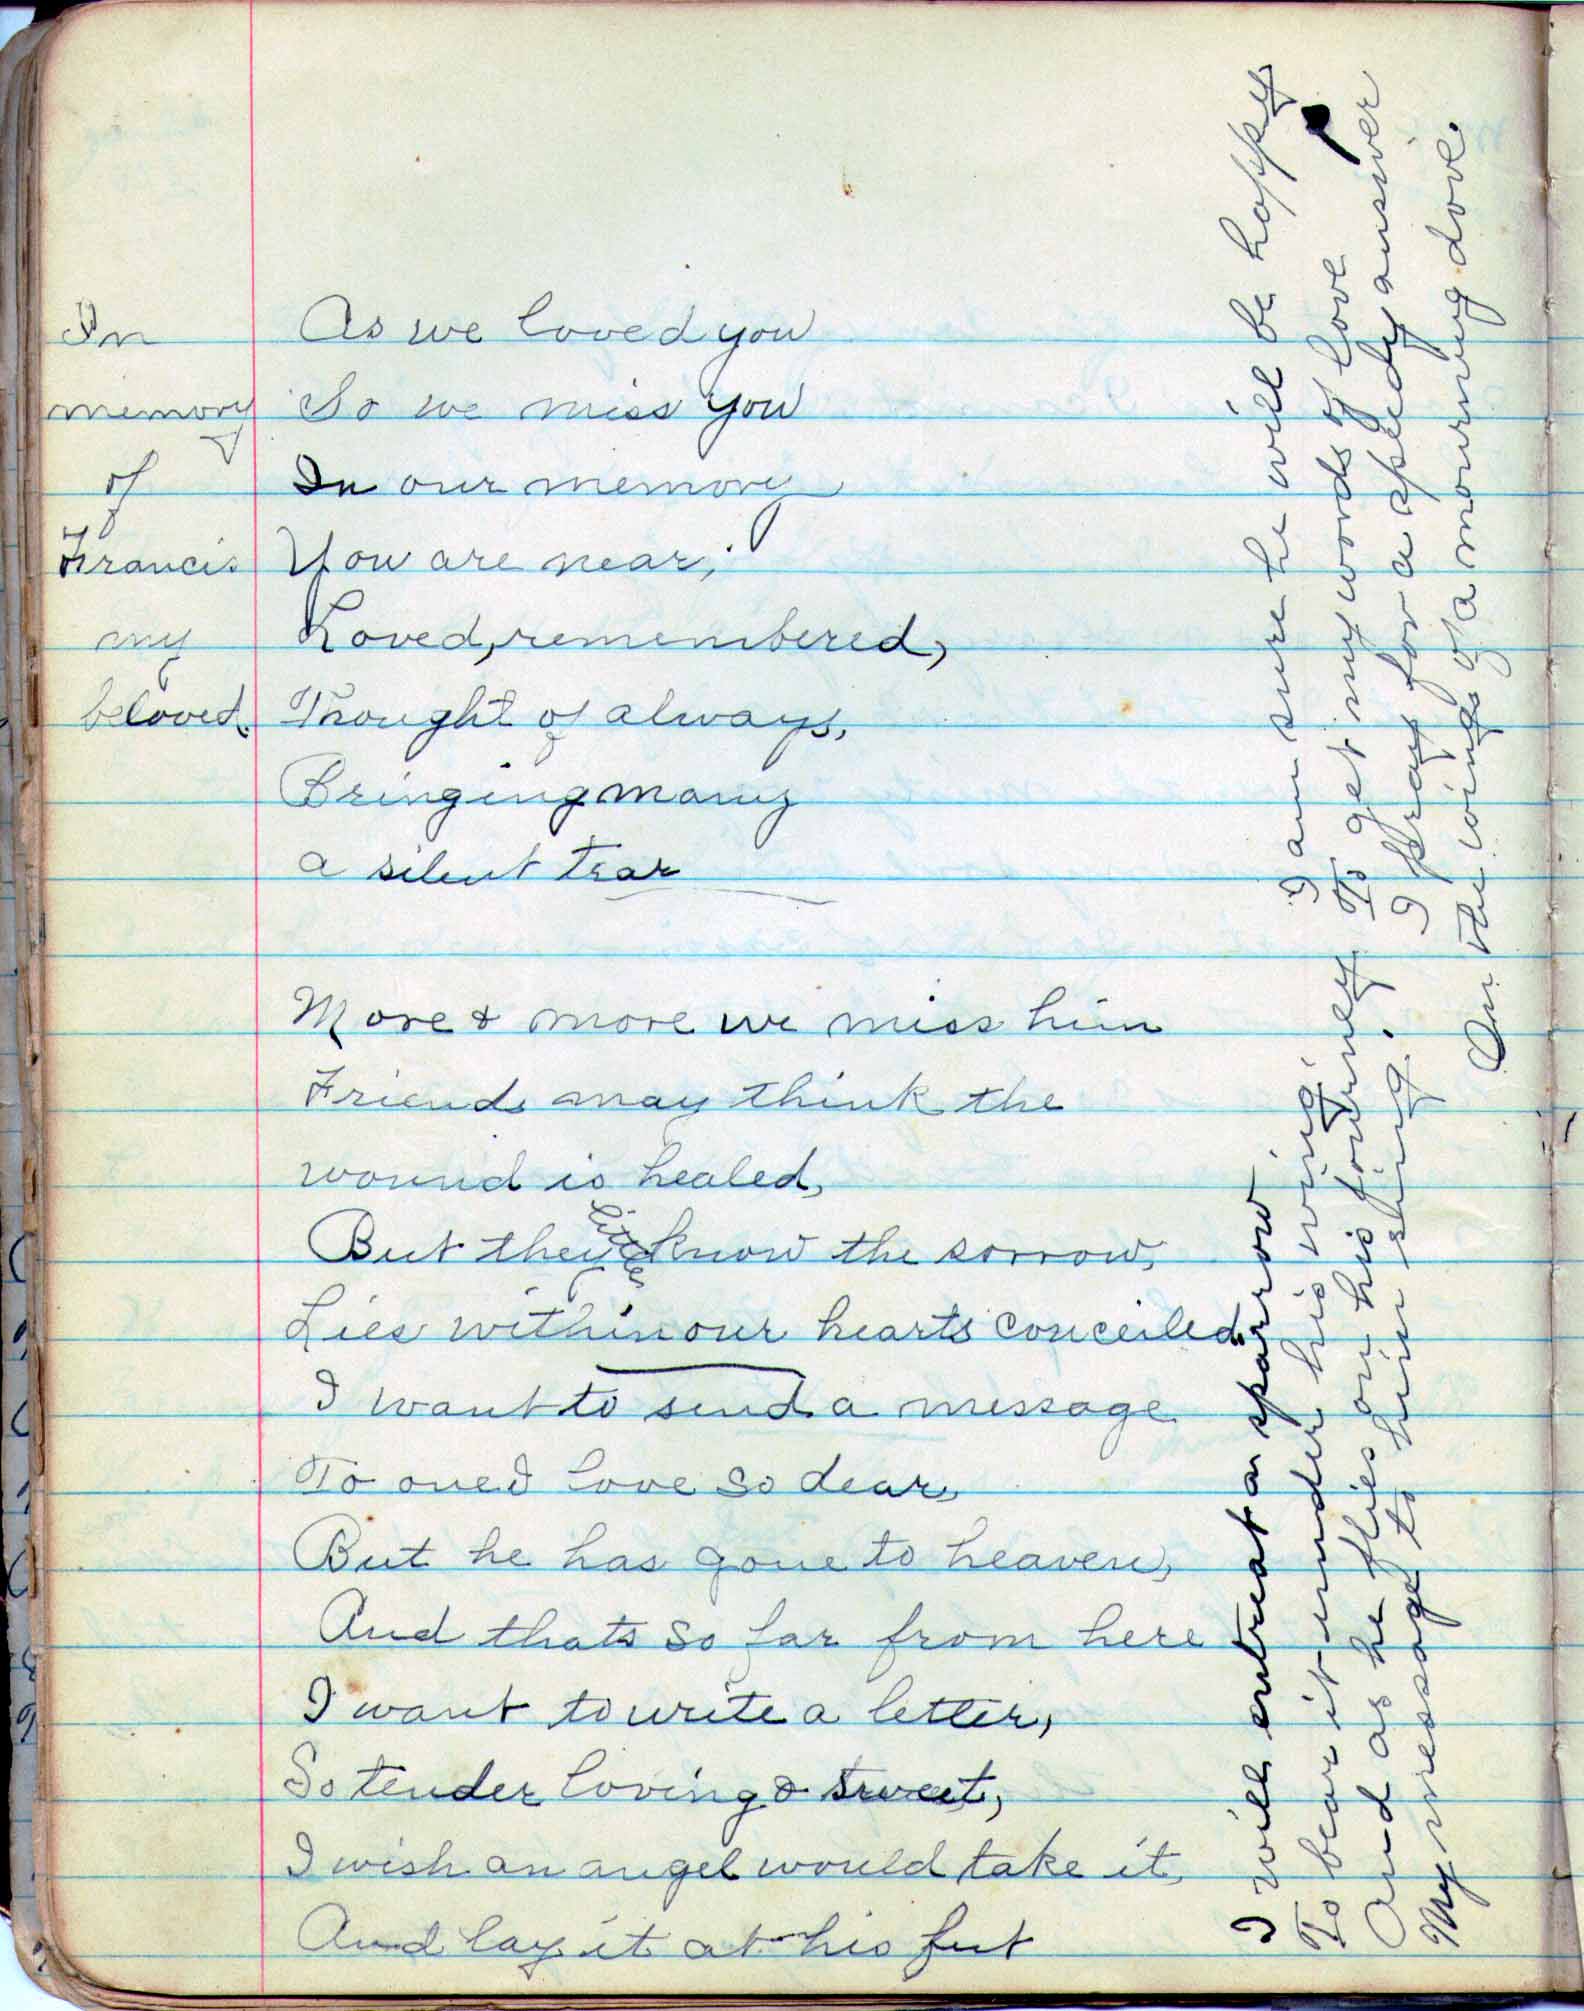 In
memory
of
Francis
my
beloved.
As we loved you
So we miss you
In our memory
You are near,
Loved, remembered,
Thought of always,
Bringing many
a silent tear
More & more we miss him
Friends may think the
wound is healed,
But they little know the sorrow,
Lies within our hearts conceiled
I want to send a message
To one I love so dear,
But he has gone to heaven,
And thats so far from here
I want to write a letter,
So tender loving & sweet,
I wish an angel would take it,
And lay it at his feet
I will entreat a sparrow,
To bear it under his wing,
And as he flies on his journey
My message to him sing.
I am sure he will be happy
To get my words of love
I pray for a speedy answer
On the wings of a mourning dove.